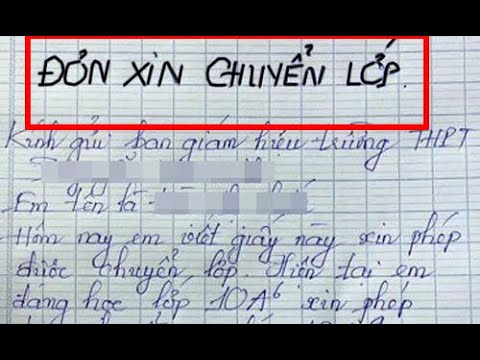 ĐƠN XIN CHUYỂN LỚP.
Kính gửi ban giám hiệu trường THPT
Em tên là
Hôm nay em viết giấy này xin phép
được chuyển lớp. Hiện tại em
đang học lớp 10A6 xin phép